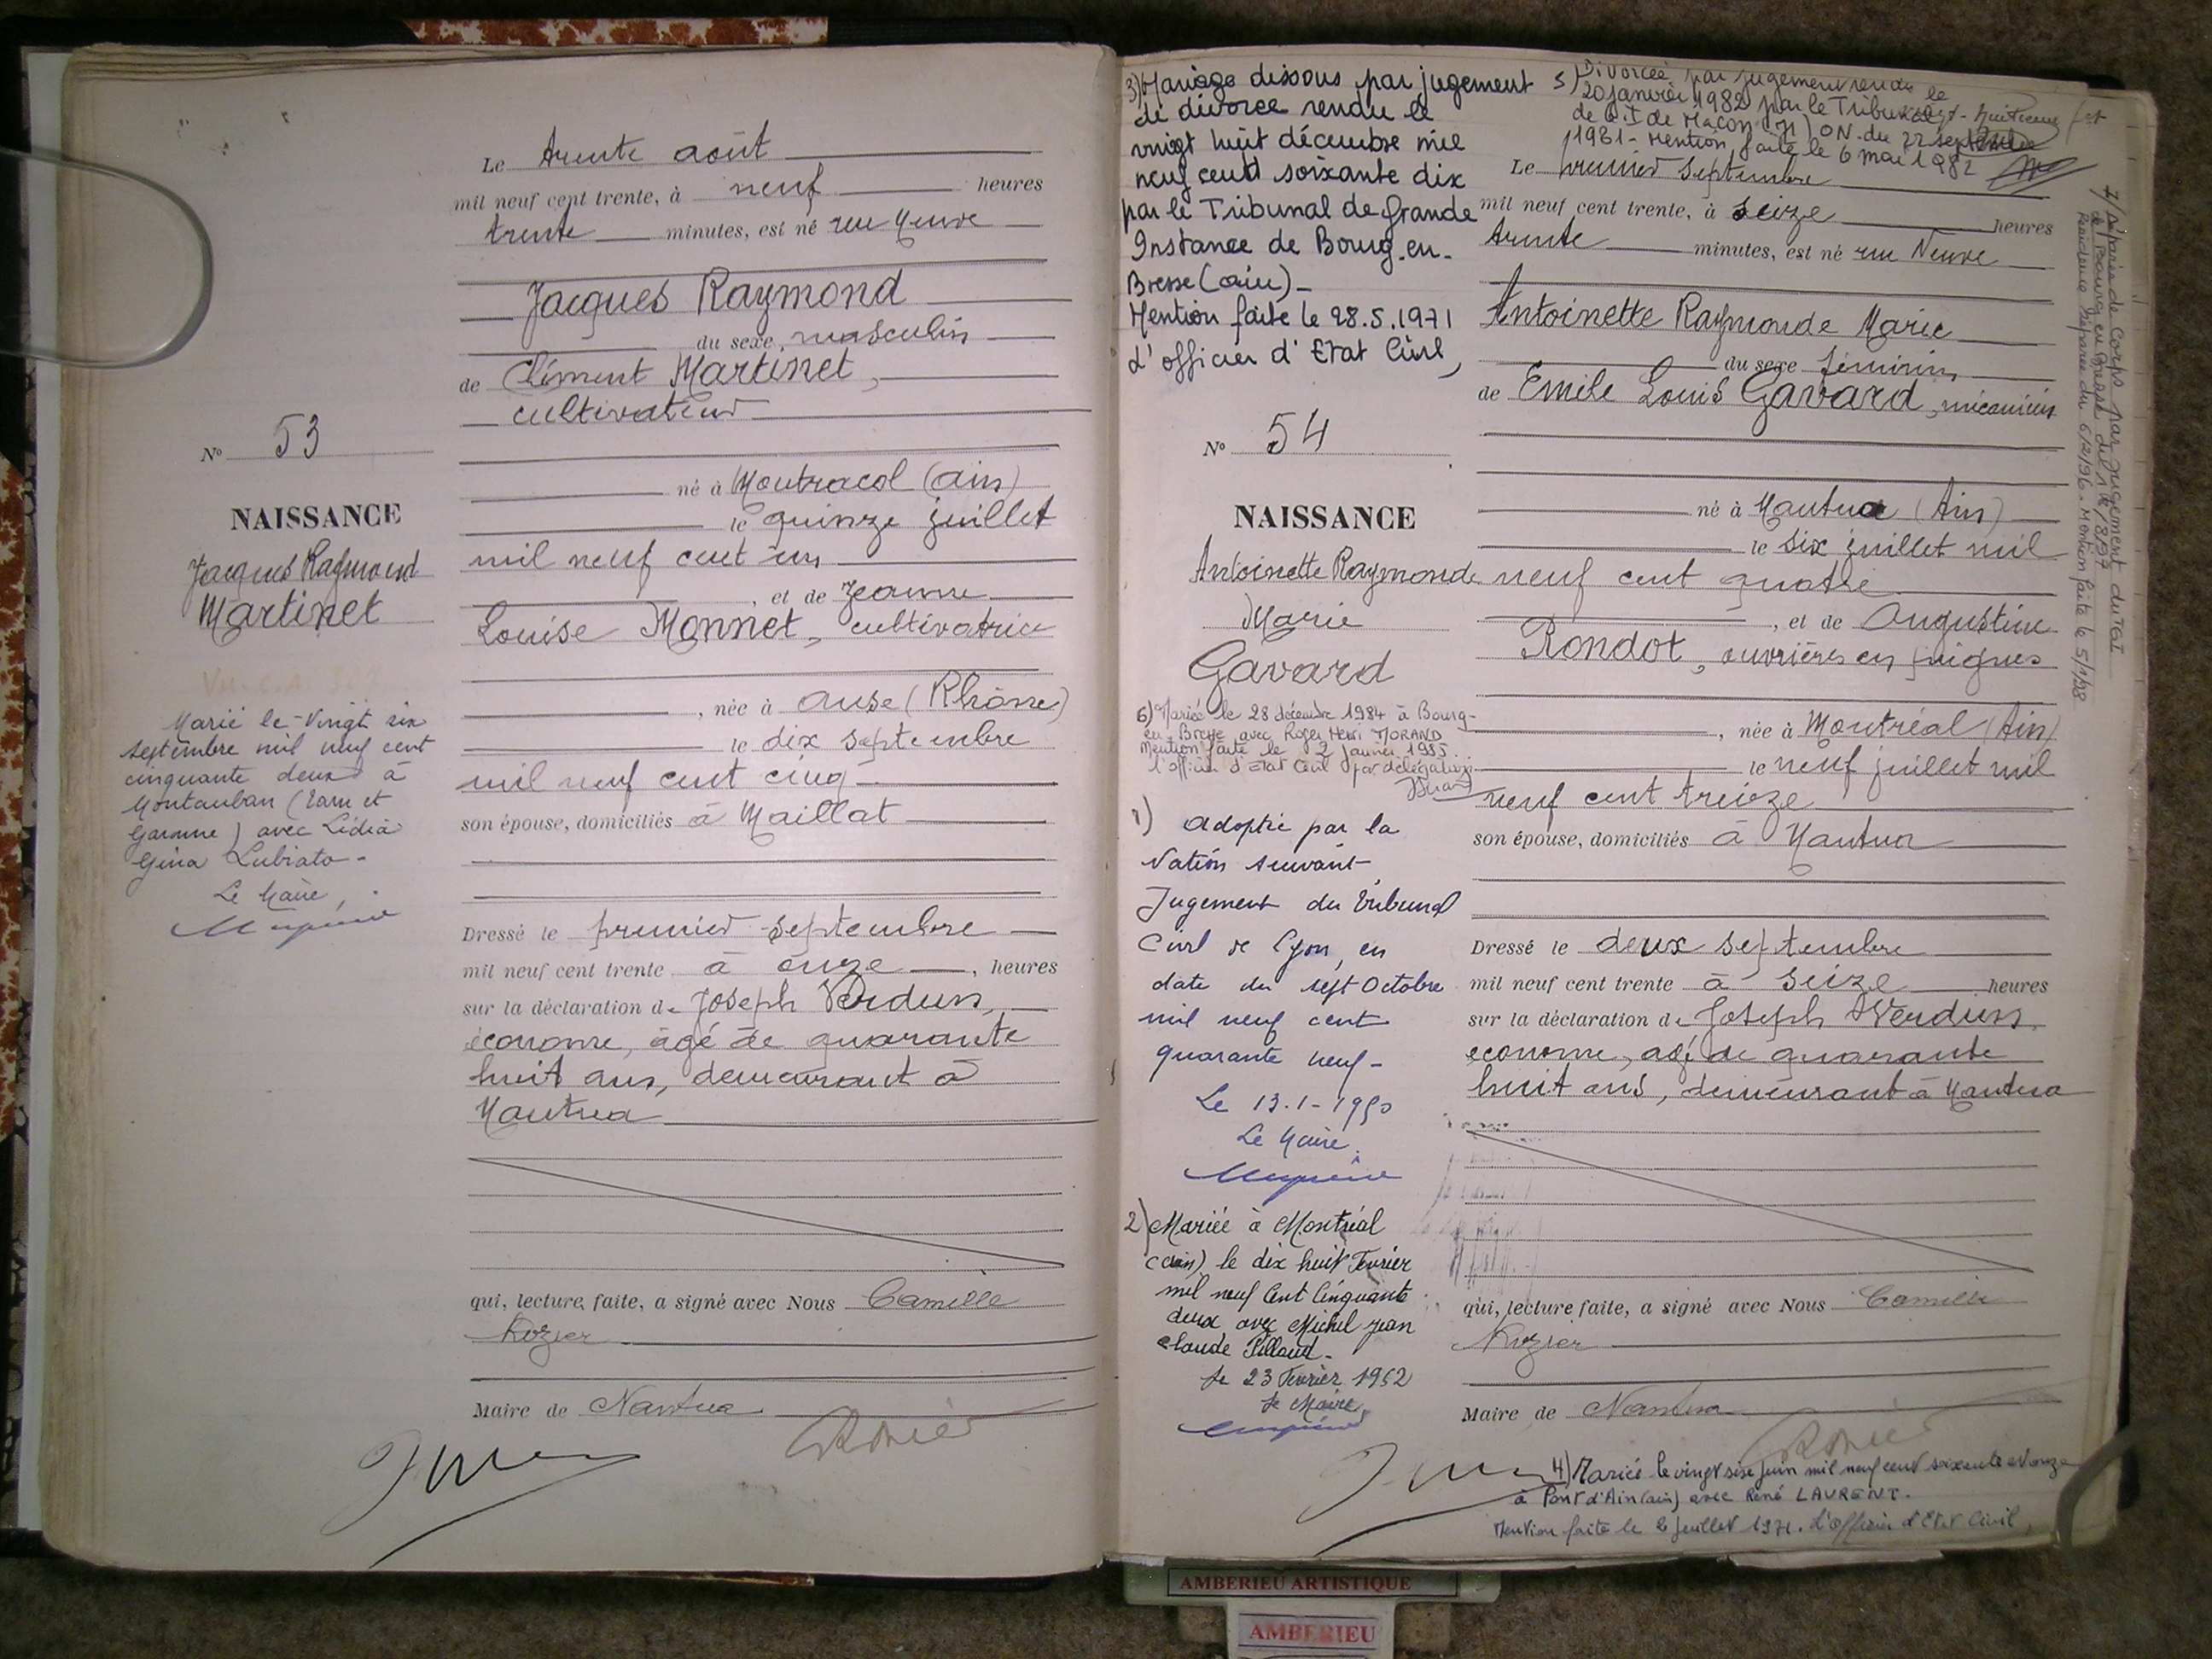 Le trente août
mil neuf cent trente, à neuf heures
trente minutes, est né rue Neuve
Jacques Raymond
du sexe masculin
de Clément Martinet,
cultivateur
né à Montracol (Ain)
le quinze juillet
mil neuf cent un
, et de Jeanne
Louise Monnet, cultivatrice
, née à Anse (Rhône)
le dix septembre
mil neuf cent cinq
son épouse, domiciliés à Maillat
Dressé le premier septembre
mil neuf cent trente à onze, heures
sur la déclaration de Joseph Verdun,
économe, âgé de quarante
huit ans, demeurant à
Nantua
qui, lecture faite, a signé avec Nous Camille
Rozier
Maire de Nantua
No 53
NAISSANCE
Jacques Raymond
Martinet
Marié le vingt six
septembre mil neuf cent
cinquante deux à
Montauban (Tarn et
Garonne) avec Lidia
Gina Lubiato -
Le Maire,
3) Mariage dissous par jugement
de divorce rendu le
vingt huit décembre mil
neuf cent soixante dix
par le Tribunal de Grande
Instance de Bourg-en-
Bresse (Ain) -
Mention faite le 28.5.1971
L'officier d'Etat Civil,
5) Divorcée par jugement rendu le
20 janvier 1982 par le Tribunal
de G.I de Macon (71) O.N. du 22 septembre
1981 - Mention faite le 6 mai 1982
No 54
NAISSANCE
Antoinette Raymonde
Marie
Gavard
6) Mariée le 28 décembre 1984 à Bourg-
en-Bresse avec Roger Henri MORAND
Mention faite le 2 janvier 1985.
l'officier d'Etat Civil par délégation
1) Adoptée par la
Nation suivant
Jugement du Tribunal
Civil de Lyon, en
date du sept Octobre
mil neuf cent
quarante neuf -
Le 13-1-1950
Le Maire,
2) Mariée à Montréal
(Ain) le dix huit Février
mil neuf cent cinquante
deux avec Michel Jean
Claude Pilland -
Le 23 Février 1952
Le Maire,
Le premier septembre
mil neuf cent trente, à seize heures
trente minutes, est né rue Neuve
Antoinette Raymonde Marie
du sexe féminin
de Emile Louis Gavard, mécanicien
né à Nantua (Ain)
le six juillet mil
neuf cent quatre
, et de Augustine
Rondot, ouvrière en peignes
, née à Montréal (Ain)
le neuf juillet mil
neuf cent treize
son épouse, domiciliés à Nantua
Dressé le deux septembre
mil neuf cent trente à seize heures
sur la déclaration de Joseph Verdun,
économe, âgé de quarante
huit ans, demeurant à Nantua
qui, lecture faite, a signé avec Nous Camille
Rozier
Maire de Nantua
4) Mariée le vingt six juin mil neuf cent soixante et onze
à Pont d'Ain (Ain) avec René LAURENT.
Mention faite le 2 juillet 1971. L'officier d'Etat Civil,
7/ Séparée de Corps par jugement du TGI
de Bourg en Bresse du
Résidence séparée du 6/2/96 - Mention faite le 5/1/98
AMBERIEU ARTISTIQUE
AMBERIEU